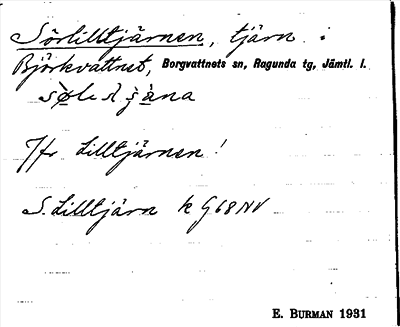 Sörlilltjärnen, tjärn i
Björkvattnet, Borgvattnets sn, Ragunda tg, Jämtl. l.
Jfr Lilltjärnen!
S. Lilltjärn k G68NV
E. BURMAN 1931